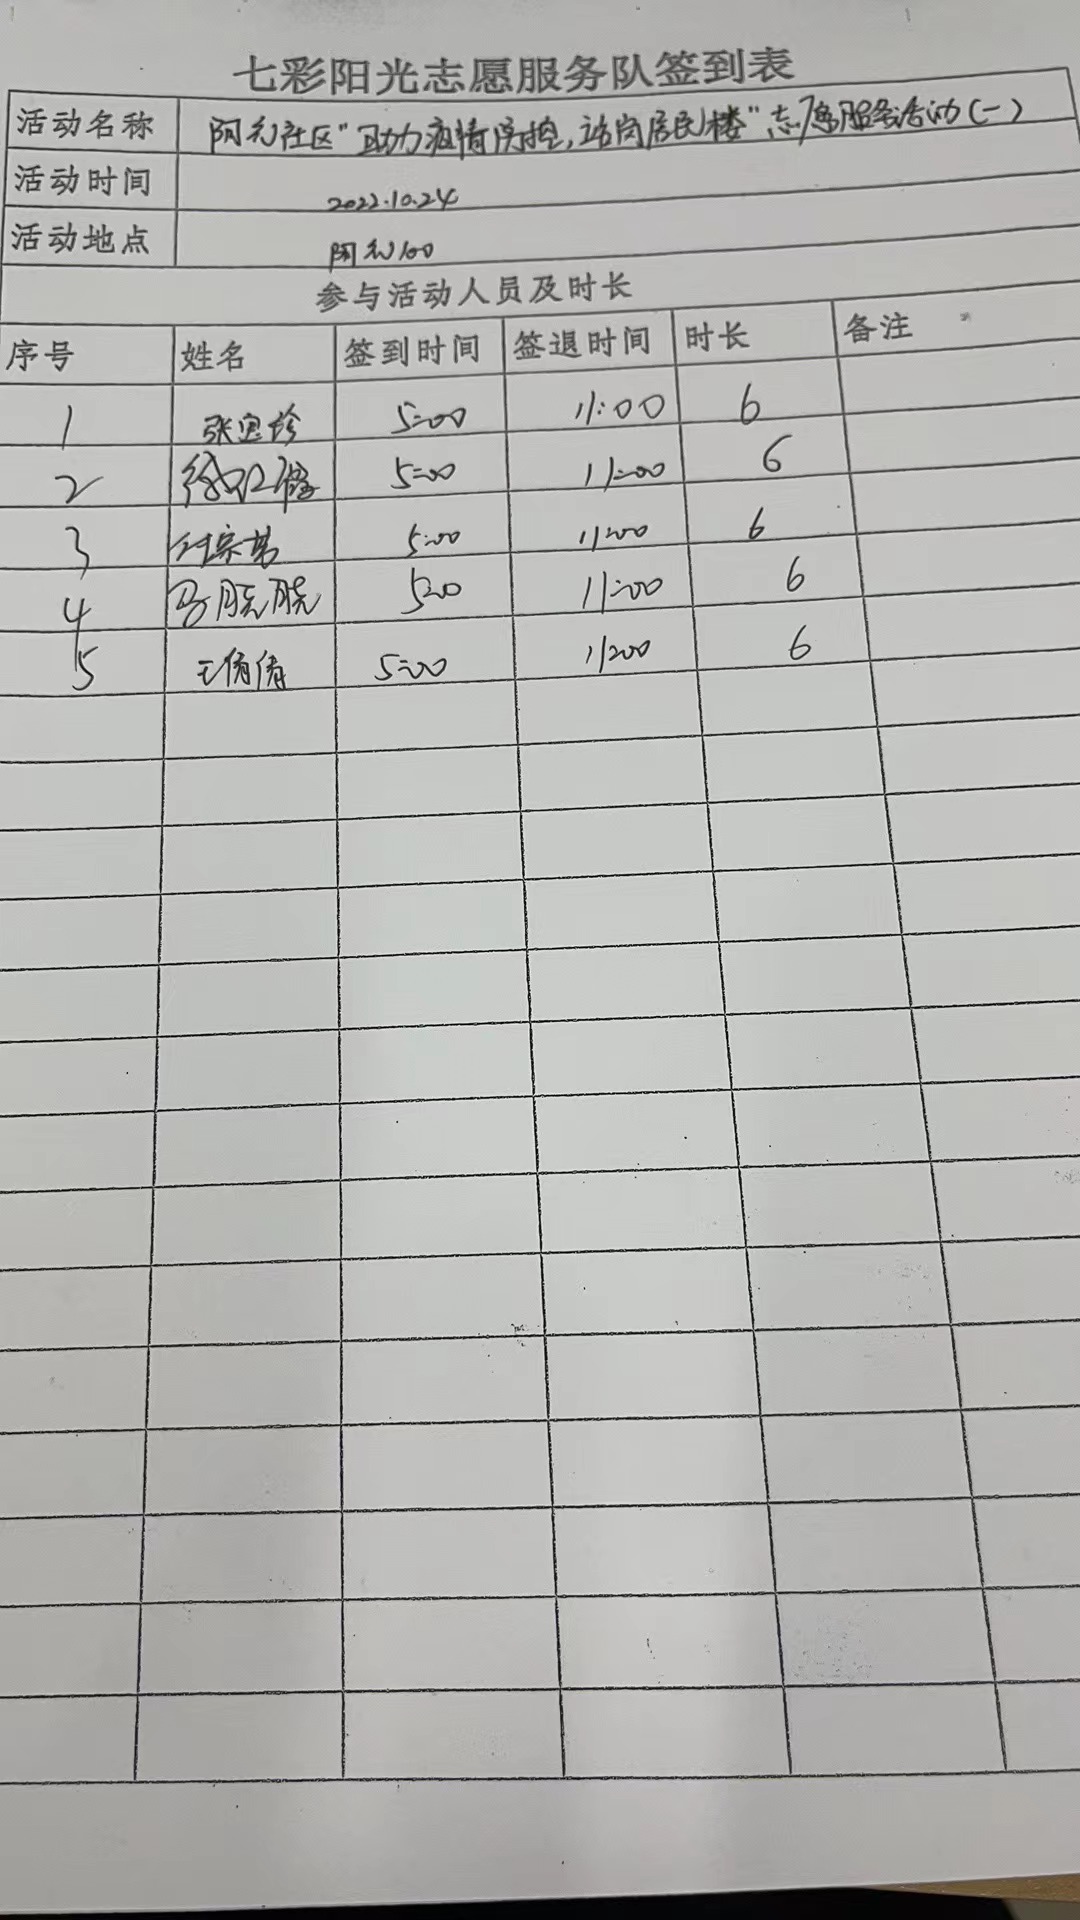 七彩阳光志愿服务队签到表
活动名称 阿元社区"助力疫情防控,站岗居民楼"志愿服务活动(一)
活动时间 2022.10.24
活动地点 阿元
参与活动人员及时长
序号 姓名 签到时间 签退时间 时长 备注
1 5:00 11:00 6
2 5:00 11:00 6
3 5:00 11:00 6
4 马晓晓 5:00 11:00 6
5 王倩倩 5:00 11:00 6